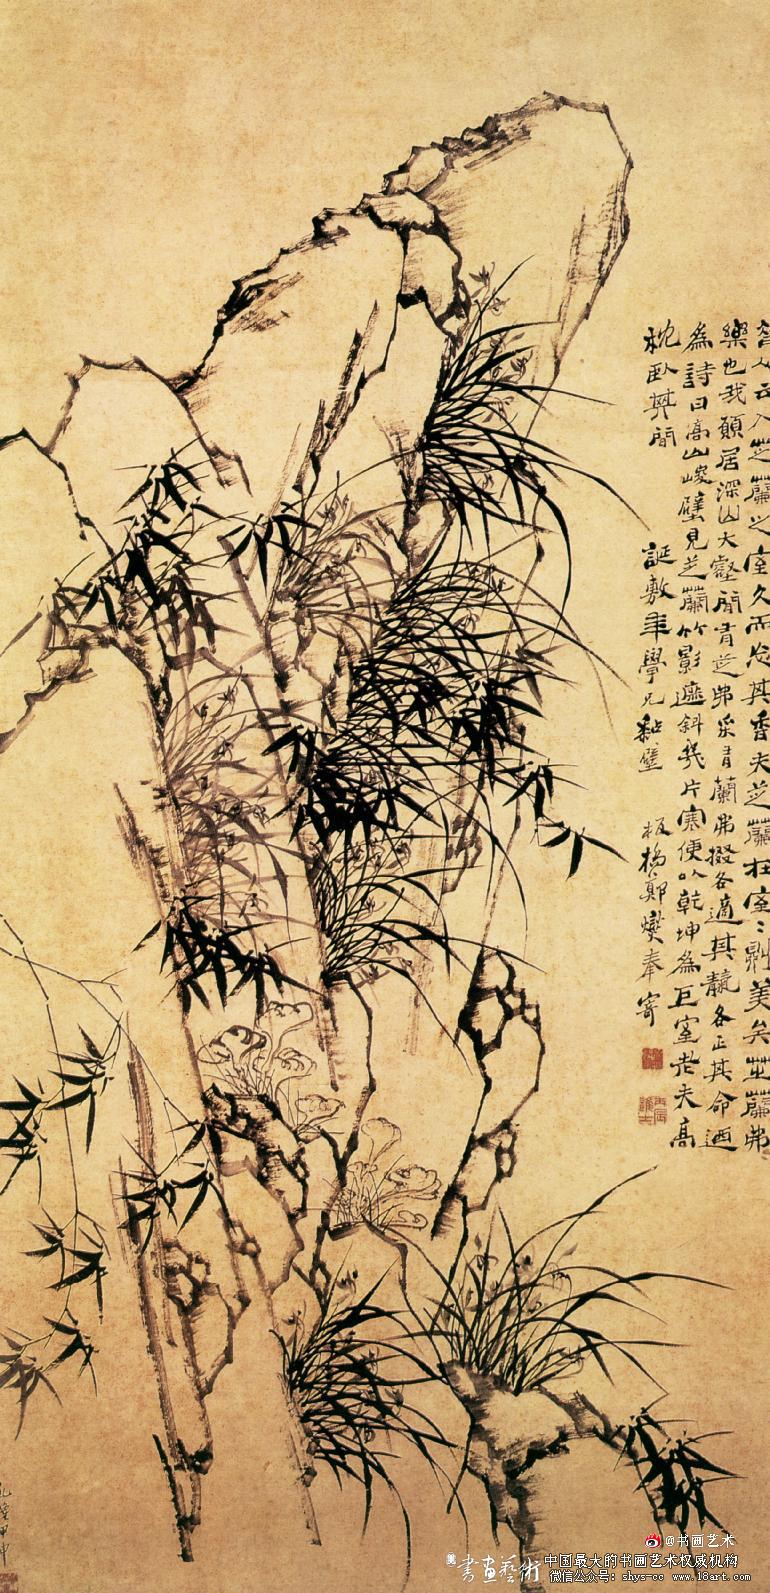 昔人云入芝蘭之室久而忘其香夫芝蘭在室室則美矣芝蘭弗
樂也我願居深山大壑間有芝弗采有蘭弗掇各適其天各正其命迺
為詩曰高山峻壁見芝蘭竹影遮斜幾片寒便以乾坤為巨室老夫高
枕臥其間
誕敷年學兄黏壁 板橋鄭燮奉寄
乾隆甲申
書画藝術
@书画艺术
中国最大的书画艺术权威机构
微信公众号: shys-cc www.18art.com